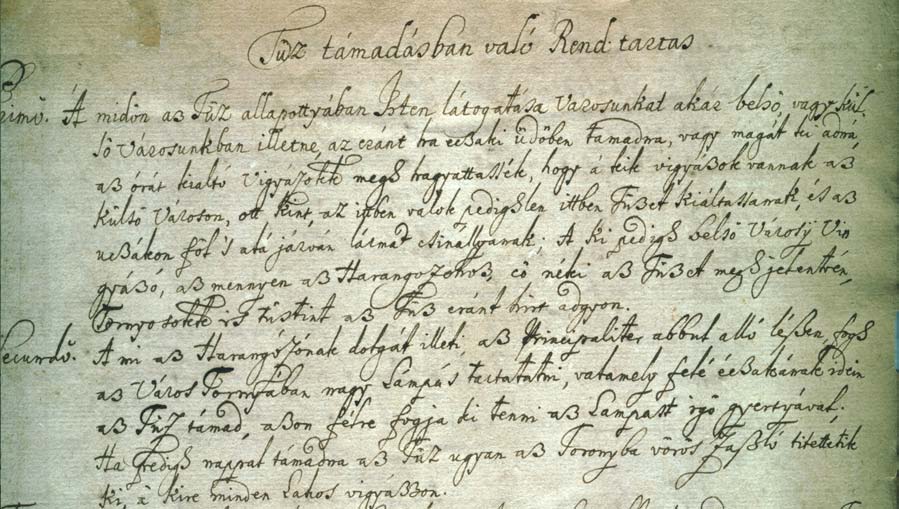 Tüz támadásban való Rend tartas
Primō. A midőn az Tüz allapottyában Isten látogatása Varosunkat akár belső, vagy kül-
ső Városunkban illetne, az eránt ha eczaki üdőben támadna, vagy magát ki adná,
az órát kialtó Vigyázokk megh hagyattassék, hogy á kik vigyázok vannak az
külső Városon, ott kint, az itben valok pedighlen itben Tüzet kiáltassanak, és az
uczákon föl 's alá járván lármát csinállyanak; A ki pedigh belső Városÿ Vi-
gyázó, az mennyen az Harangozohoz, eő néki az Tüzet megh jelentvén,
Tornyosokk is tüstint az Tüz eránt hirt adgyon.
Secundō. A mi az Harangózonak dolgát illeti, az Principaliter abbul alló lészen, hogh
az Város Tornyában nagy Lampás tartatatni, valamely felé éczakának idein
az Tüz támad, azon félre fogja ki tenni az Lampast égő gyertyával.
Ha pedigh nappal támadna az Tüz ugyan az Toronyba vörös Zászló tétettetik
ki, á kire minden Lakos vigyázzon.